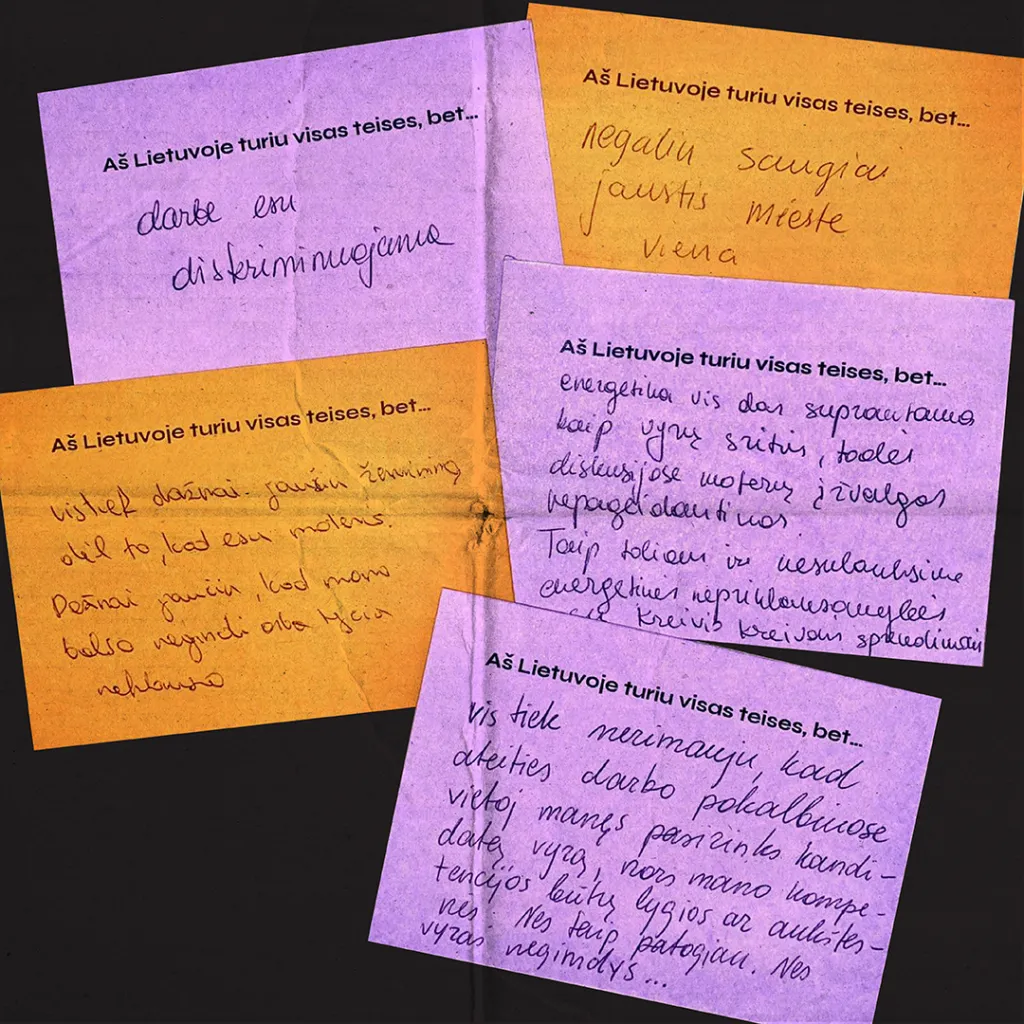 Aš Lietuvoje turiu visas teises, bet...
darbe esu
diskriminuojama
Aš Lietuvoje turiu visas teises, bet...
negaliu saugiai
jaustis mieste
viena
Aš Lietuvoje turiu visas teises, bet...
energetika vis dar suprantama
kaip vyrų sritis, todėl
diskusijose moterų įžvalgos
nepageidautinos.
Taip toliau ir nesulauksime
energetinės nepriklausomybės
kreivis kreivam sprendimais
Aš Lietuvoje turiu visas teises, bet...
vistiek dažnai jaučiu žeminimą
dėl to, kad esu moteris.
Dažnai jaučiu, kad mano
balso negirdi arba tyčia
neklauso
Aš Lietuvoje turiu visas teises, bet...
vis tiek nerimauju, kad
ateities darbo pokalbiuose
vietoj manęs pasirinks kandi-
datą vyrą, nors mano kompe-
tencijos būtų lygios ar aukštes-
nės. Nes taip patogiau. Nes
vyras negimdys...